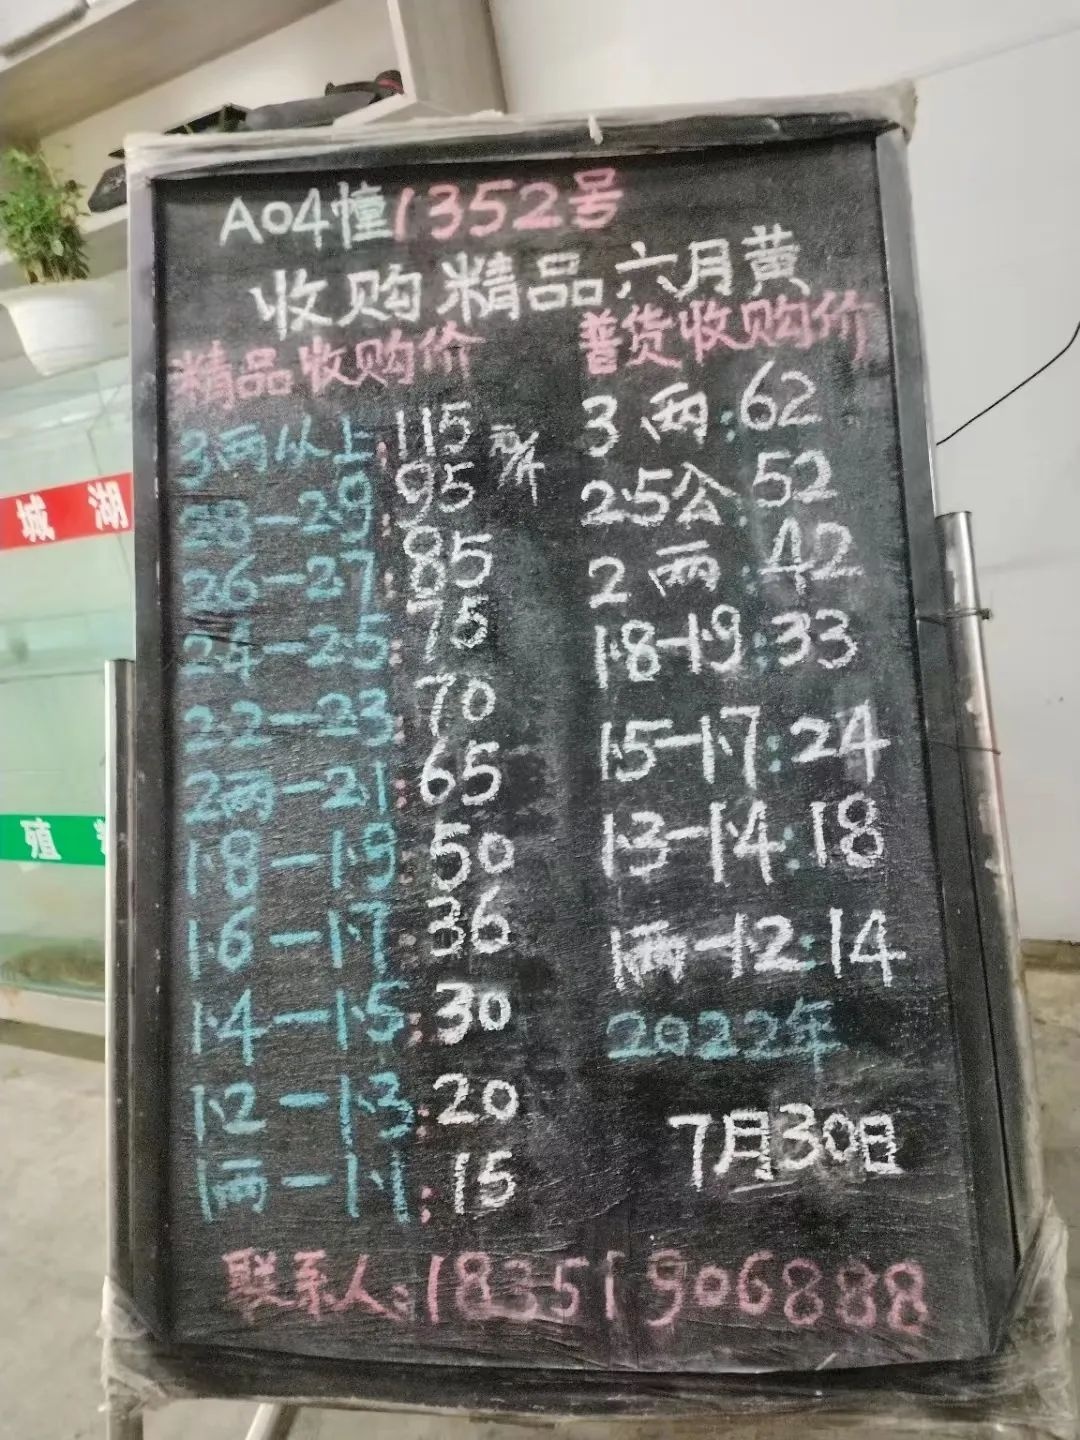 A04幢1352号
收购精品六月黄
精品收购价
3两以上:115元/斤
28-29:95
26-27:85
24-25:75
22-23:70
2两-2.1:65
1.8-1.9:50
1.6-1.7:36
1.4-1.5:30
1.2-1.3:20
1两-1.1:15
普货收购价
3两:62
2.5公:52
2两:42
1.8-1.9:33
1.5-1.7:24
1.3-1.4:18
1两-1.2:14
2022年
7月30日
联系人:18351906888
城 湖
殖